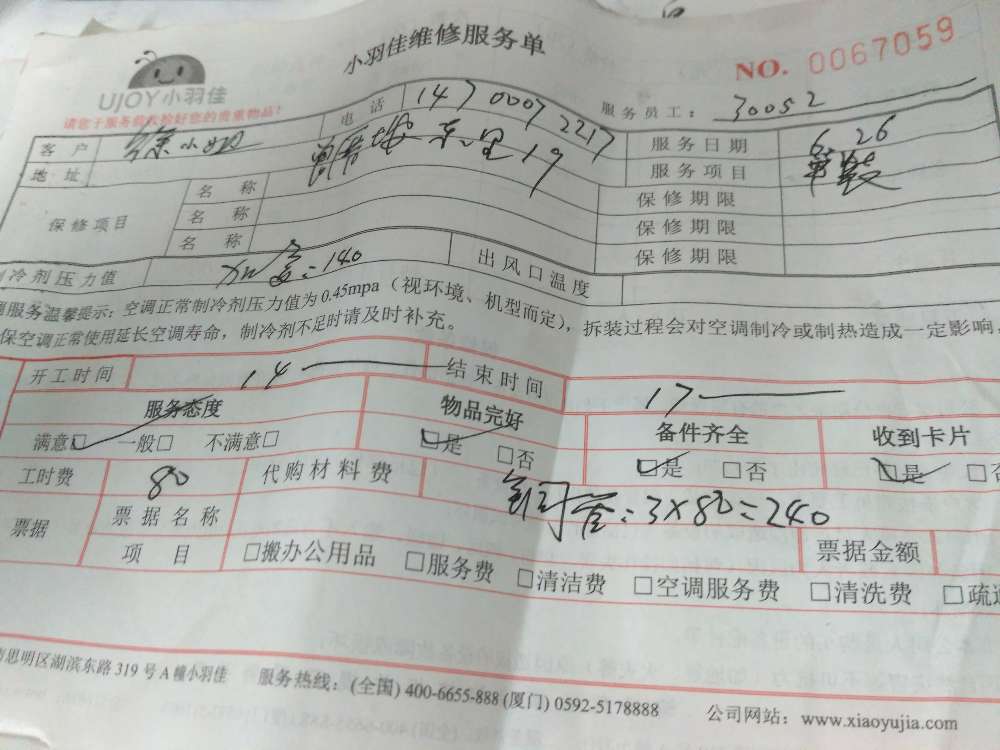 小羽佳维修服务单
NO. 0067059
UJOY小羽佳
请您于服务前收检好您的贵重物品!
服务员工: 30052
客户 徐小姐 电话 147 0007 2217 服务日期 6.26
地址 东里19 服务项目 单装
保修项目 名称 保修期限
名称 保修期限
名称 保修期限
制冷剂压力值 加 =140 出风口温度
服务温馨提示:空调正常制冷剂压力值为0.45mpa(视环境、机型而定),拆装过程会对空调制冷或制热造成一定影响,
保空调正常使用延长空调寿命,制冷剂不足时请及时补充。
开工时间 14 — 结束时间 17 —
服务态度 物品完好 备件齐全 收到卡片
满意□ 一般□ 不满意□ □是 □否 □是 □否 □是 □否
工时费 80 代购材料费 铜管:3×80=240
票据 票据名称 票据金额
项目 □搬办公用品 □服务费 □清洁费 □空调服务费 □清洗费 □疏通
思明区湖滨东路319号A幢小羽佳 服务热线:(全国) 400-6655-888 (厦门) 0592-5178888 公司网站:www.xiaoyujia.com